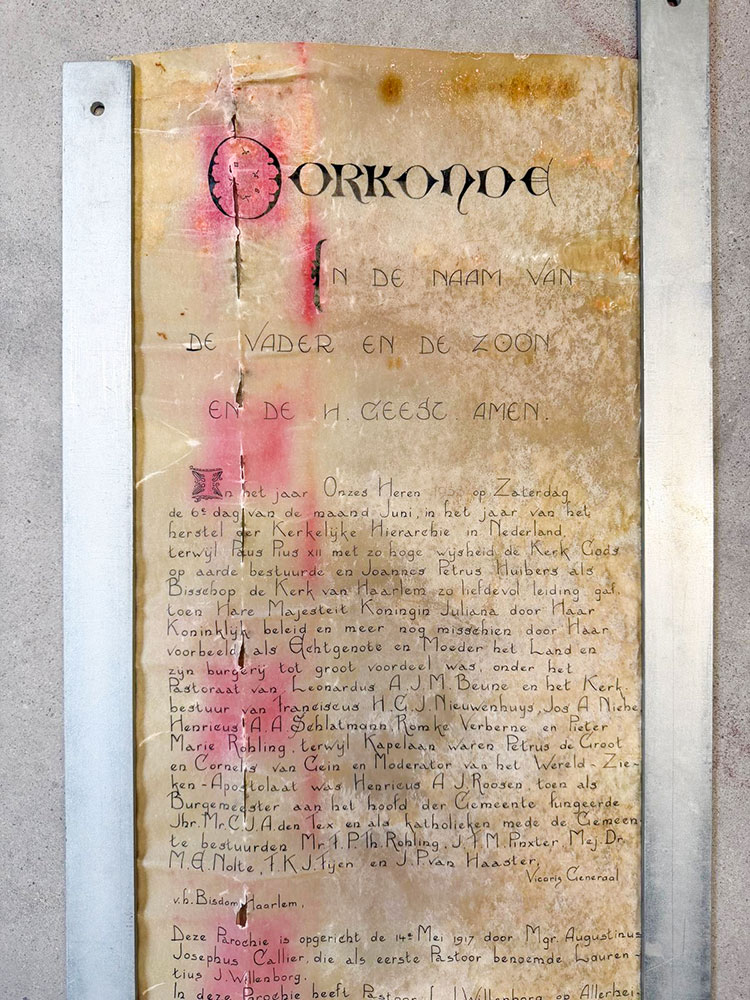 OORKONDE
IN DE NAAM VAN
DE VADER EN DE ZOON
EN DE H. GEEST. AMEN.
In het jaar Onzes Heren op Zaterdag
de 6e dag van de maand Juni, in het jaar van het
herstel der Kerkelijke Hierarchie in Nederland,
terwijl Paus Pius XII met zo hoge wijsheid de Kerk Gods
op aarde bestuurde en Joannes Petrus Huibers als
Bisschop de Kerk van Haarlem zo liefdevol leiding gaf,
toen Hare Majesteit Koningin Juliana door Haar
Koninklijk beleid en meer nog misschien door Haar
voorbeeld als Echtgenote en Moeder het Land en
zijn burgerij tot groot voordeel was, onder het
Pastoraat van Leonardus A.J.M. Beune en het Kerk-
bestuur van Franciscus H.C.J. Nieuwenhuys, Jos A. Niehe,
Henricus A.A. Schlatmann, Romke Verberne en Pieter
Marie Röhling, terwijl Kapelaan waren Petrus de Groot
en Cornelis van Gein en Moderator van het Wereld-Zie-
ken-Apostolaat was Henricus A.J. Roosen, toen als
Burgemeester aan het hoofd der Gemeente fungeerde
Jhr. Mr. C.J.A. den Tex en als katholieken mede de Gemeen-
te bestuurden Mr. F.P.Th. Rohling, J.F.M. Pinxter, Mej. Dr.
M.E. Nolte, F.K.J. Fijen en J.P. van Haaster,
Vicaris Generaal
v.h. Bisdom Haarlem.
Deze Parochie is opgericht de 14e Mei 1917 door Mgr. Augustinus
Josephus Callier, die als eerste Pastoor benoemde Lauren-
tius J. Willenborg.
In deze Parochie heeft Pastoor L.J. Willenborg op Allerhei-